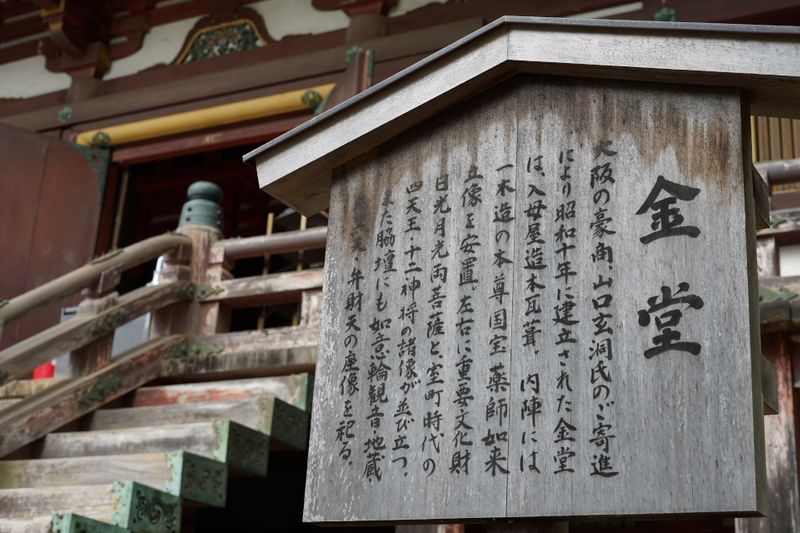 金堂
大阪の豪商、山口玄洞氏のご寄進
により昭和十年に建立された金堂
は、入母屋造本瓦葺、内陣には
一木造の本尊国宝薬師如来
立像を安置、左右に重要文化財
日光月光両菩薩と、室町時代の
四天王・十二神将の諸像が並び立つ。
また脇壇にも如意輪観音・地蔵
弁財天の座像を祀る。